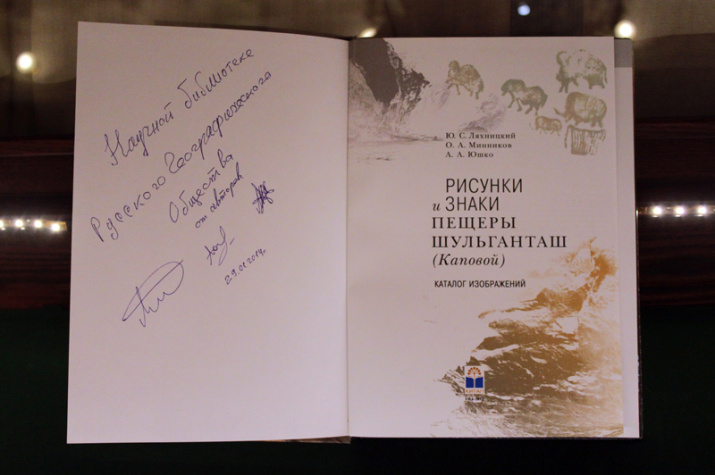 Научной библиотеке
Русского Географического
Общества
от авторов
29.01.2014
Ю. С. Ляхницкий
О. А. Минников
А. А. Юшко
РИСУНКИ
и ЗНАКИ
ПЕЩЕРЫ
ШУЛЬГАНТАШ
(Каповой)
КАТАЛОГ ИЗОБРАЖЕНИЙ